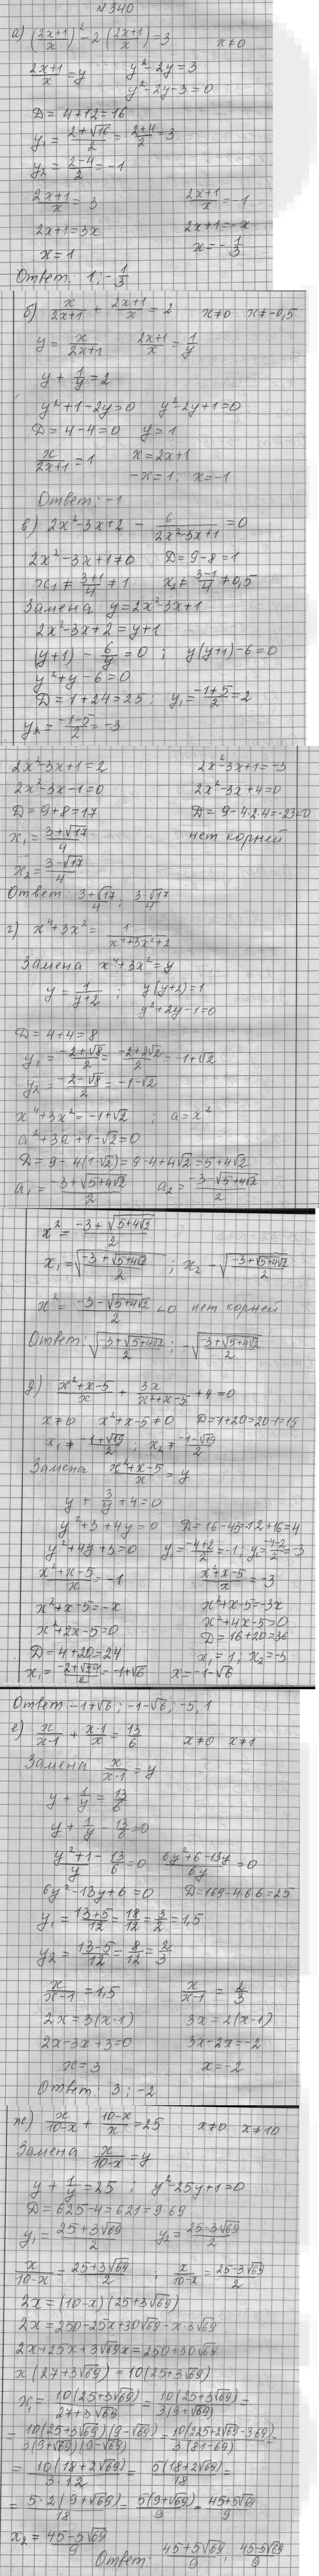 №340
а) ((2x+1)/x)² - 2((2x+1)/x) = 3   x≠0
(2x+1)/x = y   y² - 2y = 3
y² - 2y - 3 = 0
D = 4+12 = 16
y₁ = (2+√16)/2 = (2+4)/2 = 3
y₂ = (2-4)/2 = -1
(2x+1)/x = 3   (2x+1)/x = -1
2x+1 = 3x   2x+1 = -x
x = 1   x = -1/3
Ответ: 1; -1/3
б) x/(2x+1) + (2x+1)/x = 2   x≠0   x≠-0,5
y = x/(2x+1)   (2x+1)/x = 1/y
y + 1/y = 2
y² + 1 - 2y = 0   y² - 2y + 1 = 0
D = 4-4 = 0   y = 1
x/(2x+1) = 1   x = 2x+1
-x = 1; x = -1
Ответ: -1
в) 2x² - 3x + 2 - 6/(2x²-3x+1) = 0
2x² - 3x + 1 ≠ 0   D = 9-8 = 1
x₁ ≠ (3+1)/4 ≠ 1   x₂ ≠ (3-1)/4 ≠ 0,5
Замена y = 2x² - 3x + 1
2x² - 3x + 2 = y+1
(y+1) - 6/y = 0; y(y+1) - 6 = 0
y² + y - 6 = 0
D = 1+24 = 25; y₁ = (-1+5)/2 = 2
y₂ = (-1-5)/2 = -3
2x² - 3x + 1 = 2   2x² - 3x + 1 = -3
2x² - 3x - 1 = 0   2x² - 3x + 4 = 0
D = 9+8 = 17   D = 9 - 4·2·4 = -23<0
x₁ = (3+√17)/4   нет корней
x₂ = (3-√17)/4
Ответ: (3+√17)/4; (3-√17)/4
г) x⁴ + 3x² = 1/(x⁴+3x²+2)
Замена x⁴ + 3x² = y
y = 1/(y+2); y(y+2) = 1
y² + 2y - 1 = 0
D = 4+4 = 8
y₁ = (-2+√8)/2 = (-2+2√2)/2 = -1+√2
y₂ = (-2-√8)/2 = -1-√2
x⁴ + 3x² = -1+√2; a = x²
a² + 3a + 1 - √2 = 0
D = 9 - 4(1-√2) = 9 - 4 + 4√2 = 5+4√2
a₁ = (-3+√(5+4√2))/2   a₂ = (-3-√(5+4√2))/2
x² = (-3+√(5+4√2))/2
x₁ = √((-3+√(5+4√2))/2); x₂ - √((-3+√(5+4√2))/2)
x² = (-3-√(5+4√2))/2 <0 нет корней
Ответ: √((-3+√(5+4√2))/2); -√((-3+√(5+4√2))/2)
д) (x²+x-5)/x + 3x/(x²+x-5) + 4 = 0
x≠0   x²+x-5≠0
Замена (x²+x-5)/x = y
y + 3/y + 4 = 0
y² + 3 + 4y = 0
y² + 4y + 3 = 0   y₁ = (-4+2)/2 = -1; y₂ = (-4-2)/2 = -3
(x²+x-5)/x = -1   (x²+x-5)/x = -3
x²+x-5 = -x   x²+x-5 = -3x
x²+2x-5 = 0   x²+4x-5 = 0
D = 4+20 = 24   D = 16+20 = 36
x₁ = 1; x₂ = -5
x₁ = (-2+√24)/2 = -1+√6   x = -1-√6
Ответ -1+√6; -1-√6; -5; 1
е) x/(x-1) + (x-1)/x = 13/6   x≠0   x≠1
Замена x/(x-1) = y
y + 1/y = 13/6
y + 1/y - 13/6 = 0
(y²+1)/y - 13/6 = 0   (6y²+6-13y)/6y = 0
6y² - 13y + 6 = 0   D = 169 - 4·6·6 = 25
y₁ = (13+5)/12 = 18/12 = 3/2 = 1,5
y₂ = (13-5)/12 = 8/12 = 2/3
x/(x-1) = 1,5   x/(x-1) = 2/3
2x = 3(x-1)   3x = 2(x-1)
2x - 3x + 3 = 0   3x - 2x = -2
x = 3   x = -2
Ответ: 3; -2
ж) x/(10-x) + (10-x)/x = 25   x≠0   x≠10
Замена x/(10-x) = y
y + 1/y = 25; y² - 25y + 1 = 0
D = 625-4 = 621 = 9·69
y₁ = (25+3√69)/2   y₂ = (25-3√69)/2
x/(10-x) = (25+3√69)/2; x/(10-x) = (25-3√69)/2
2x = (10-x)(25+3√69)
2x = 250 - 25x + 30√69 - x·3√69
2x + 25x + 3√69x = 250 + 30√69
x(27+3√69) = 10(25+3√69)
x₁ = 10(25+3√69)/(27+3√69) = 10(25+3√69)/(3(9+√69)) =
= 10(25+3√69)(9-√69)/(3(9+√69)(9-√69)) = 10(225+2√69-3·69)/(3(81-69)) =
= 10(18+2√69)/(3·12) = 5(18+2√69)/18 =
= 5·2(9+√69)/18 = 5(9+√69)/9 = (45+5√69)/9
x₂ = (45-5√69)/9
Ответ: (45+5√69)/9; (45-5√69)/9